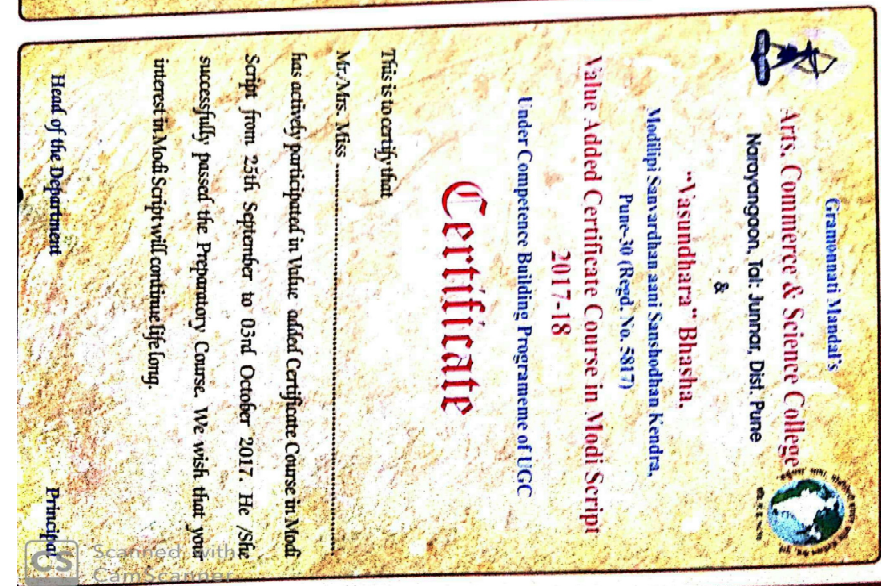 Gramonnati Mandal's
Arts, Commerce & Science College
Narayangaon, Tal: Junnar, Dist. Pune
&
"Vasundhara" Bhasha,
Modilipi Sanvardhan aani Sanshodhan Kendra,
Pune-30 (Regd. No. 5817)
Value Added Certificate Course in Modi Script
2017-18
Under Competence Building Programeme of UGC
Certificate
This is to certify that
Mr./Mrs. Miss ........................................................
has actively participated in Value added Certificate Course in Modi
Script from 25th September to 03rd October 2017. He /She
successfully passed the Preparatory Course. We wish that your
interest in Modi Script will continue life long.
Head of the Department Principal
CS Scanned with
CamScanner